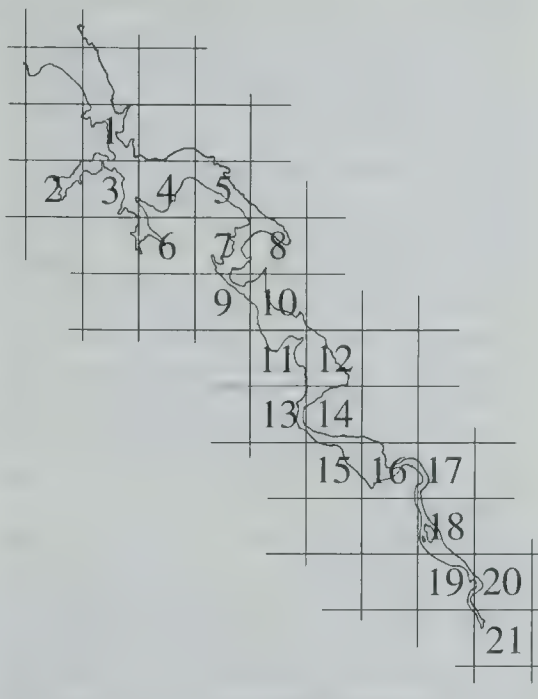 1
2 3 4 5
6 7 8
9 10
11 12
13 14
15 16 17
18
19 20
21